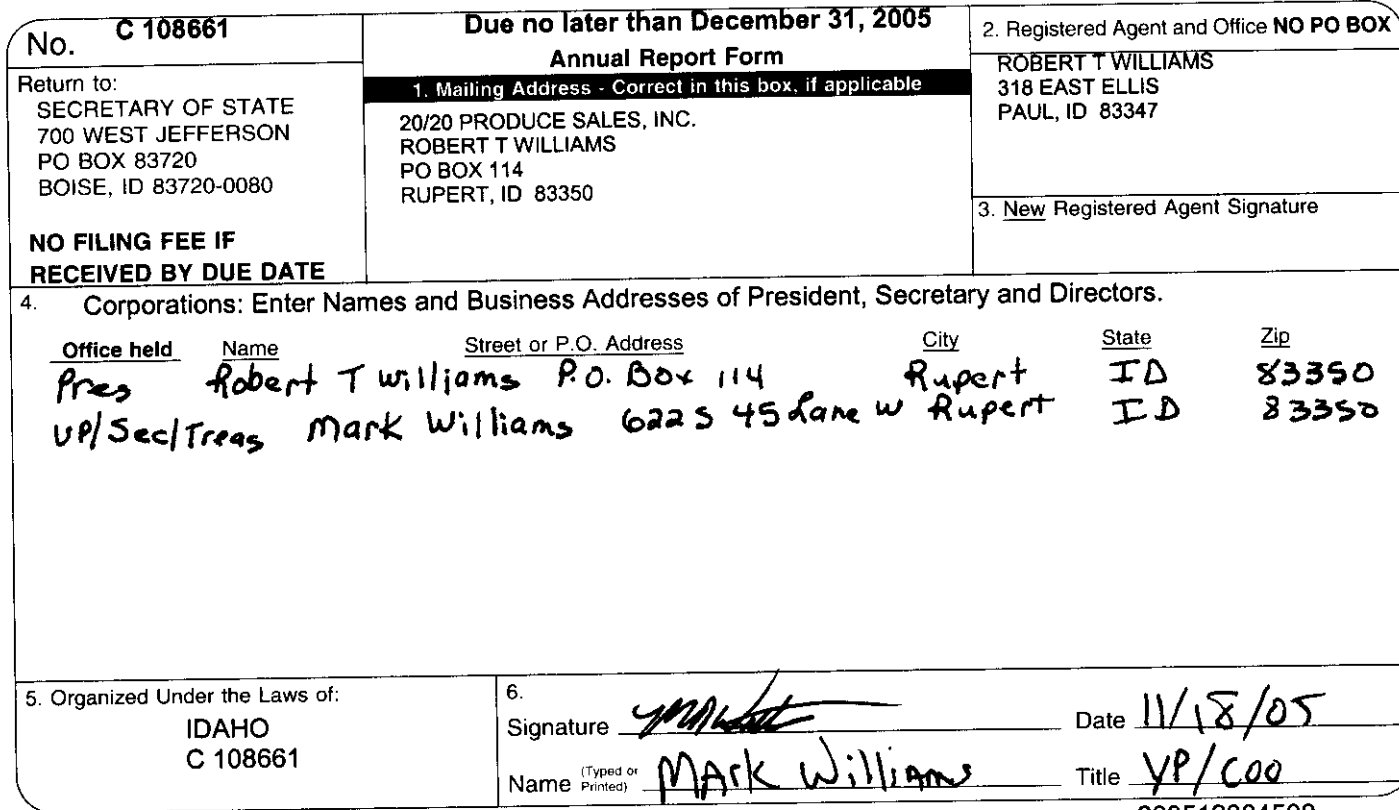 No. C 108661
Return to:
SECRETARY OF STATE
700 WEST JEFFERSON
PO BOX 83720
BOISE, ID 83720-0080
NO FILING FEE IF
RECEIVED BY DUE DATE
Due no later than December 31, 2005
Annual Report Form
1. Mailing Address - Correct in this box, if applicable
20/20 PRODUCE SALES, INC.
ROBERT T WILLIAMS
PO BOX 114
RUPERT, ID 83350
2. Registered Agent and Office NO PO BOX
ROBERT T WILLIAMS
318 EAST ELLIS
PAUL, ID 83347
3. New Registered Agent Signature
4. Corporations: Enter Names and Business Addresses of President, Secretary and Directors.
Office held Name Street or P.O. Address City State Zip
Pres Robert T Williams P.O. Box 114 Rupert ID 83350
VP/Sec/Treas Mark Williams 622 S 45 Lane W Rupert ID 83350
5. Organized Under the Laws of:
IDAHO
C 108661
6.
Signature Date 11/18/05
Name (Typed or Printed) MArk WilliAms Title VP/COO